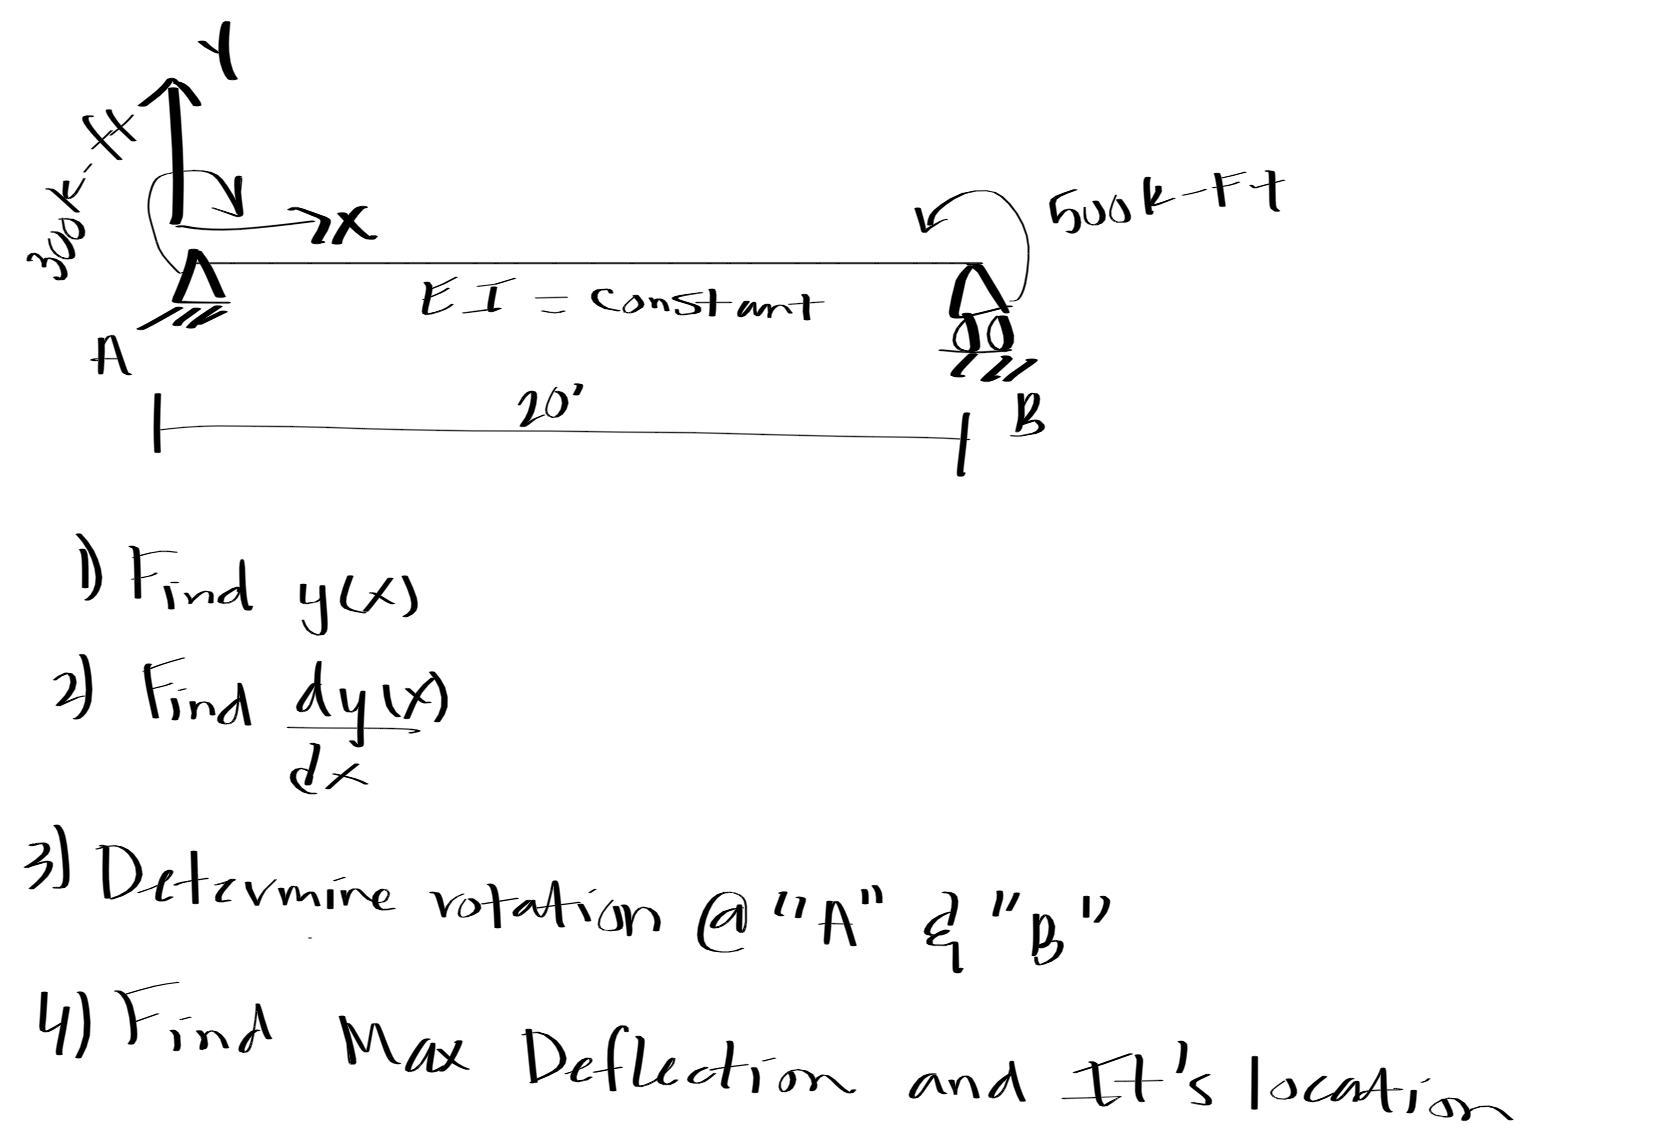 Y
300k-ft
X
500k-Ft
EI = Constant
A
20'
B
1) Find y(x)
2) Find dy(x)
dx
3) Determine rotation @ "A" & "B"
4) Find Max Deflection and It's location